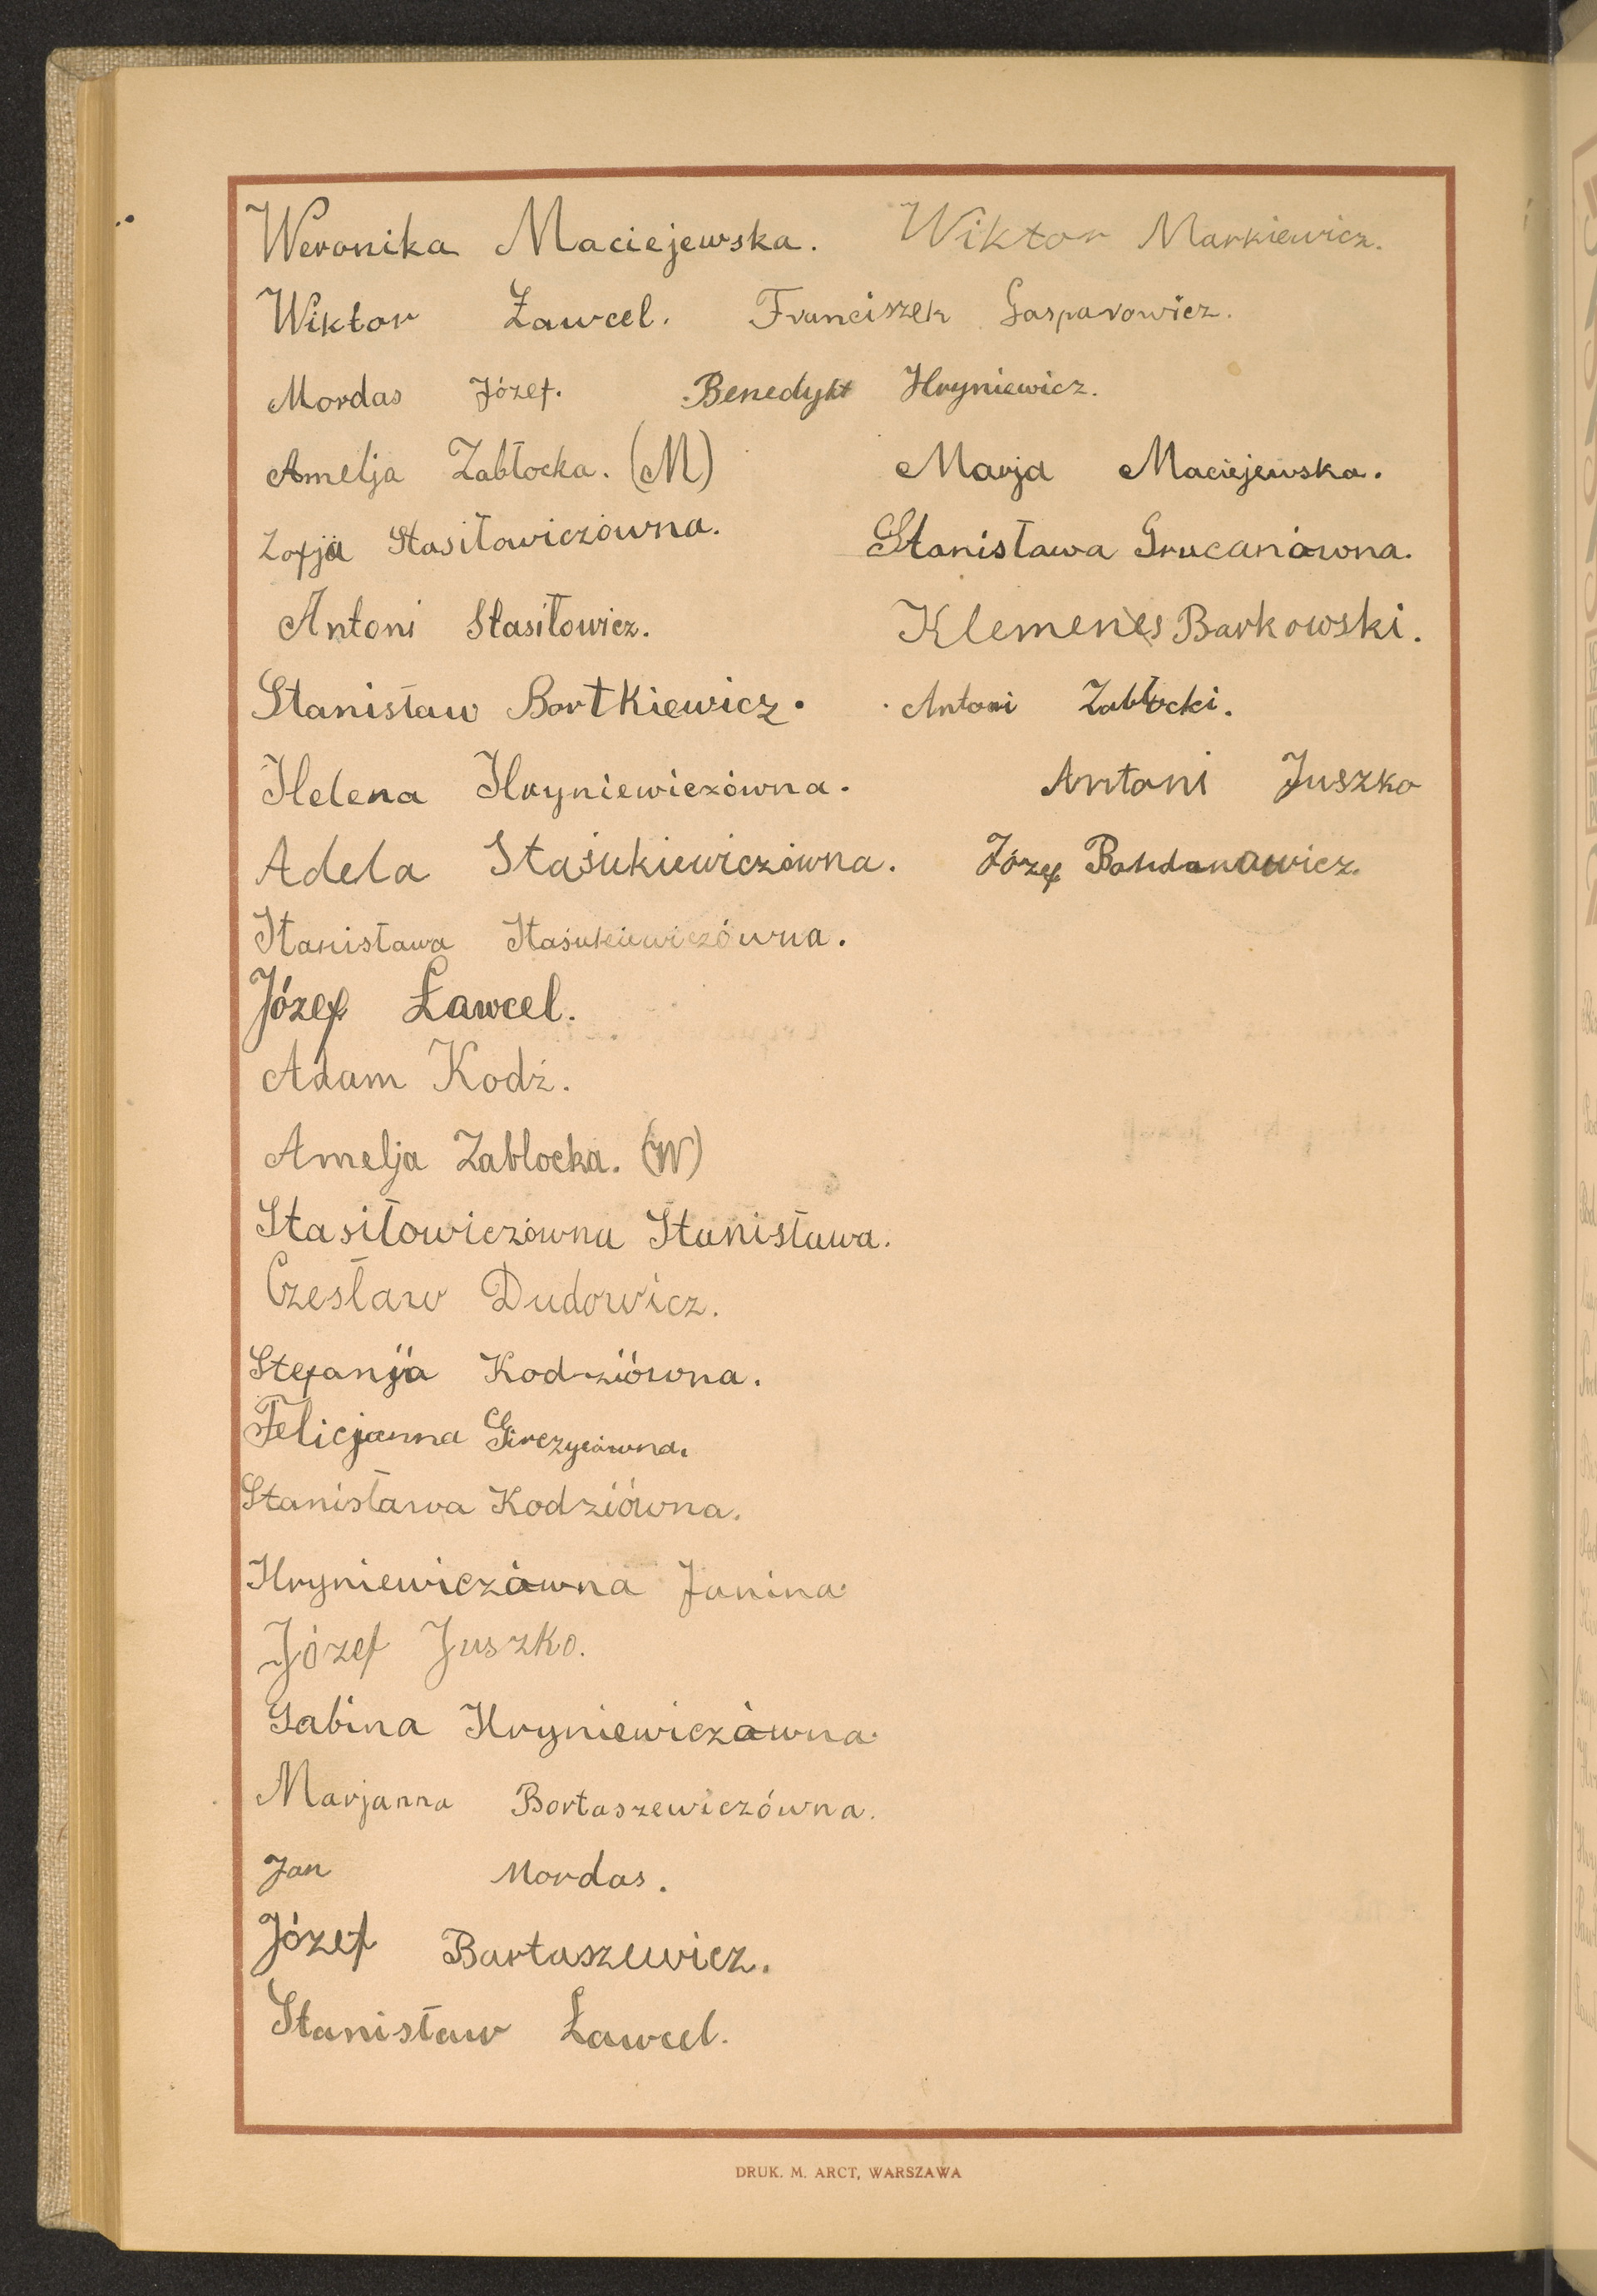 Weronika Maciejewska. Wiktor Markiewicz.
Wiktor Ławcel. Franciszek Gasparowicz.
Mordas Józef. Benedykt Hryniewicz.
Amelja Zabłocka. (M) Marja Maciejewska.
Zofja Stasiłowiczówna. Stanisława Grucanówna.
Antoni Stasiłowicz. Klemenes Barkowski.
Stanisław Bortkiewicz. Antoni Zabłocki.
Helena Hryniewiczówna. Antoni Juszko
Adela Staśukiewiczówna. Józef Bohdanowicz.
Stanisława Staśukiewiczówna.
Józef Ławcel.
Adam Kodź.
Amelja Zablocka. (W)
Stasiłowiczówna Stanisława.
Czesław Dudowicz.
Stefanja Kodziówna.
Felicjanna
Stanisława Kodziówna.
Hryniewiczówna Janina.
Józef Juszko.
Sabina Hryniewiczówna.
Marjanna Bortaszewiczówna.
Jan Mordas.
Józef Bartaszewicz.
Stanisław Ławcel.
DRUK. M. ARCT, WARSZAWA